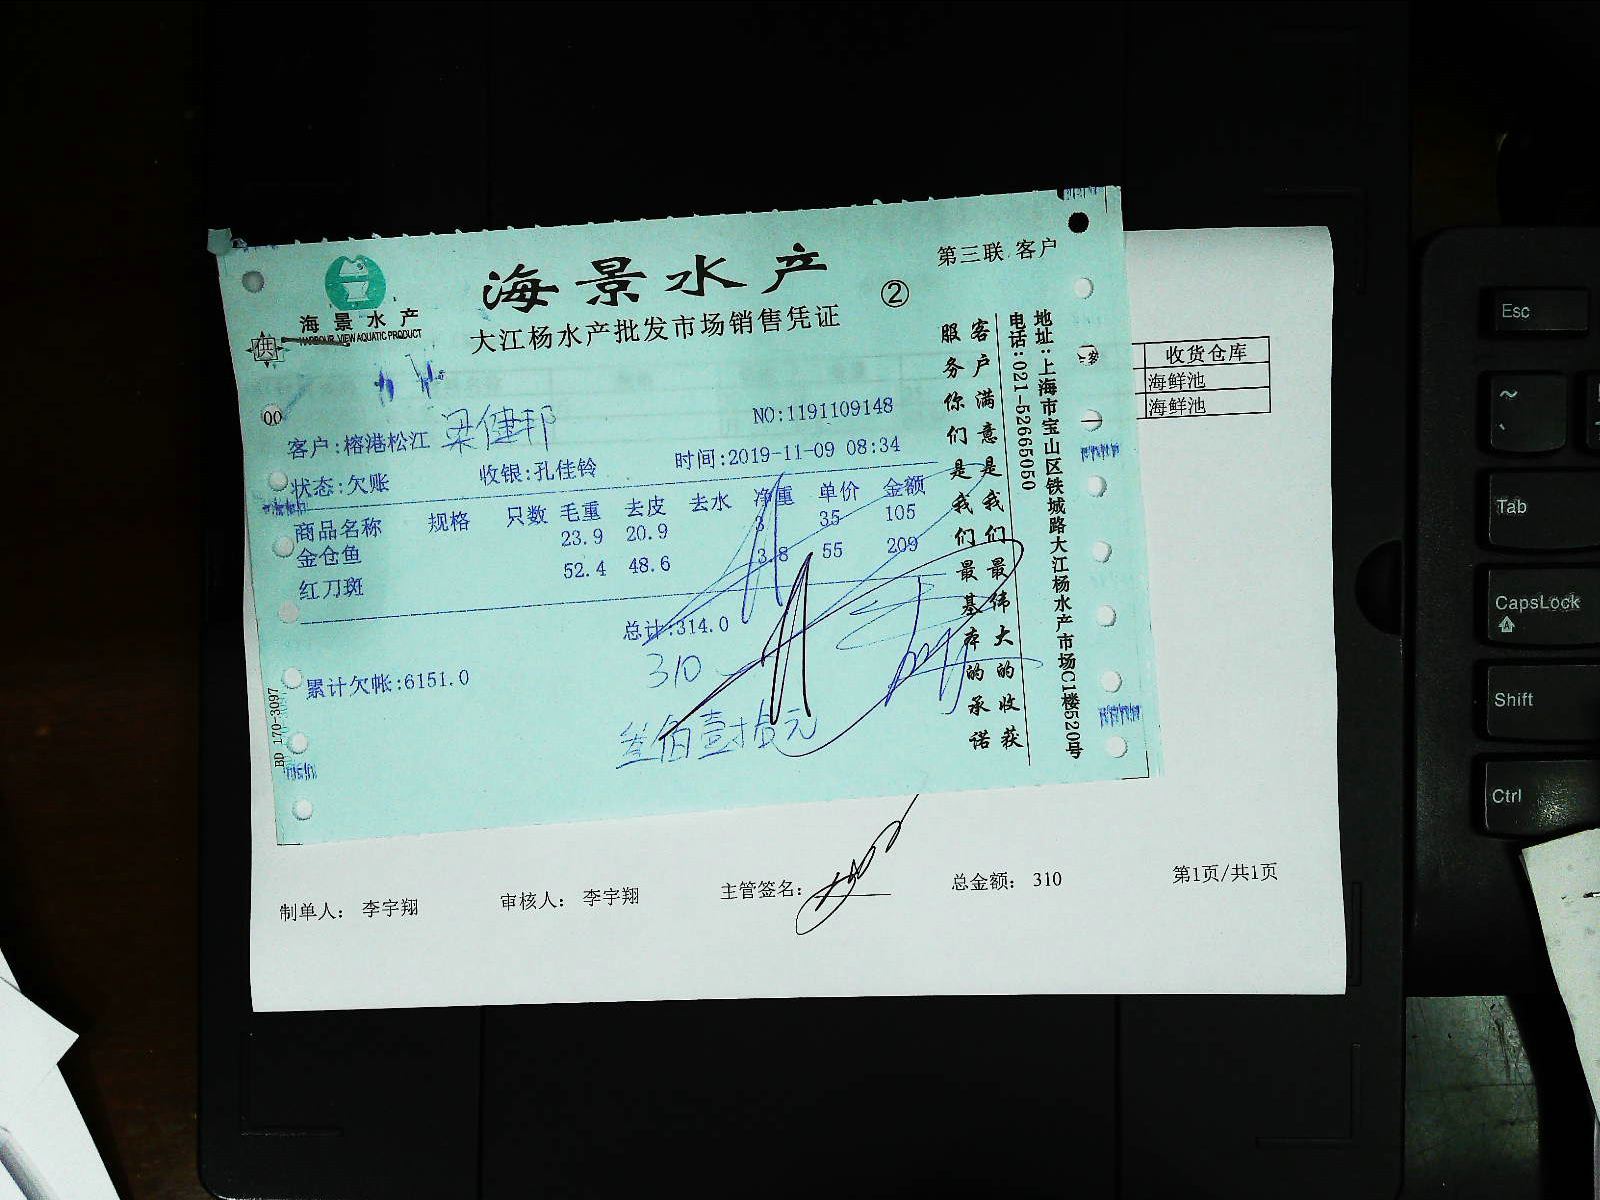 第三联 客户
海景水产
②
海景水产
HARBOUR VIEW AQUATIC PRODUCT
大江杨水产批发市场销售凭证
供
00
客户:榕港松江 梁健邦
NO:1191109148
状态:欠账 收银:孔佳铃 时间:2019-11-09 08:34
商品名称 规格 只数 毛重 去皮 去水 净重 单价 金额
金仓鱼 23.9 20.9 3 35 105
红刀斑 52.4 48.6 3.8 55 209
总计:314.0
310
累计欠帐:6151.0
叁佰壹拾元
BD 170-3097
客户满意是我们最伟大的收获
服务你们是我们最基本的承诺
地址:上海市宝山区铁城路大江杨水产市场C1楼520号
电话:021-52665050
收货仓库
海鲜池
海鲜池
制单人: 李宇翔 审核人: 李宇翔 主管签名: 总金额: 310 第1页/共1页
Esc
~
Tab
CapsLock
Shift
Ctrl